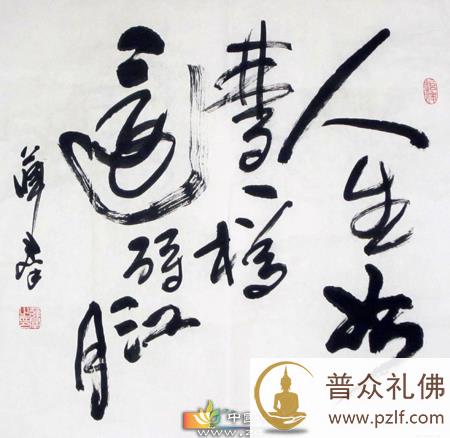 人生如
夢一樽
還酹江
月
普众礼佛
www.pzlf.com